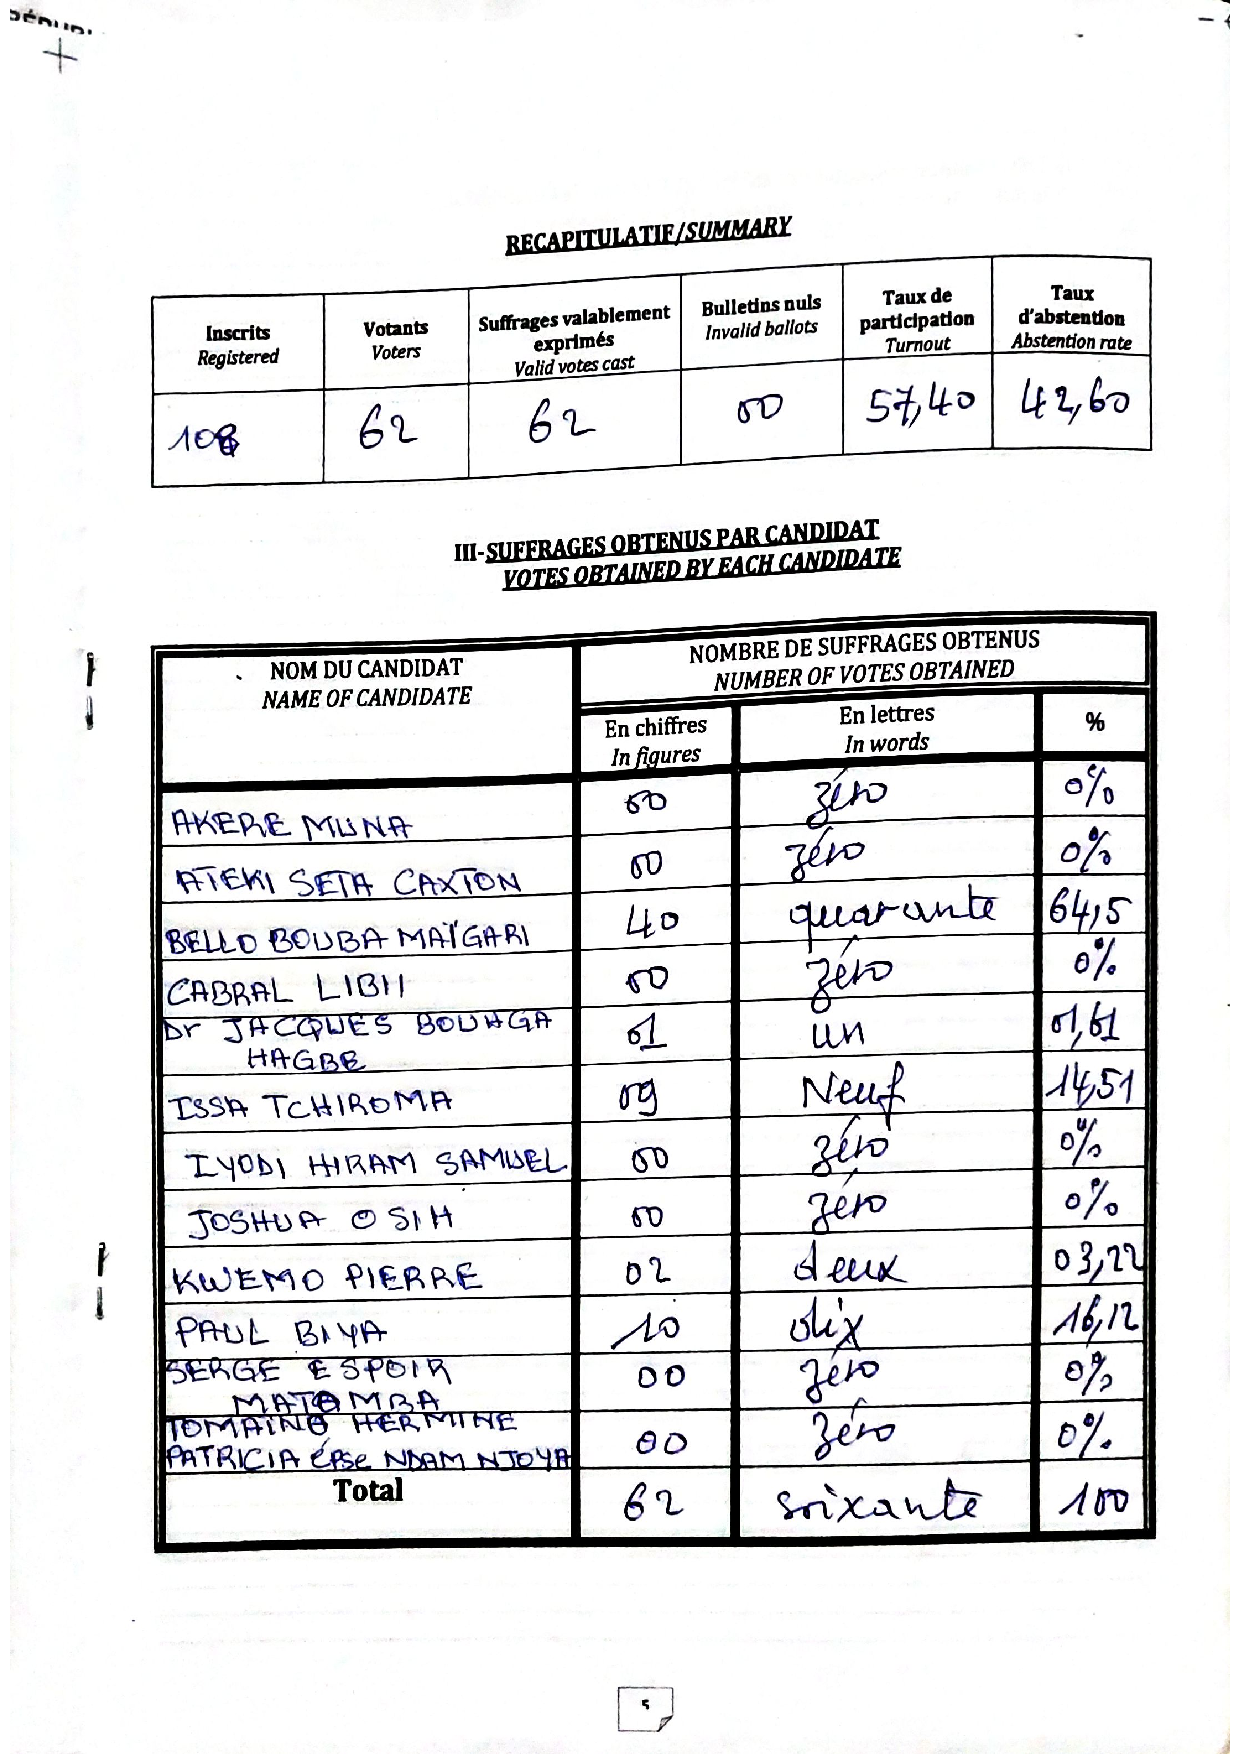 RECAPITULATIF/SUMMARY
Inscrits
Registered
Votants
Voters
Suffrages valablement
exprimés
Valid votes cast
Bulletins nuls
Invalid ballots
Taux de
participation
Turnout
Taux
d'abstention
Abstention rate
108 62 62 00 57,40 42,60
III-SUFFRAGES OBTENUS PAR CANDIDAT
VOTES OBTAINED BY EACH CANDIDATE
NOM DU CANDIDAT
NAME OF CANDIDATE
NOMBRE DE SUFFRAGES OBTENUS
NUMBER OF VOTES OBTAINED
En chiffres
In figures
En lettres
In words
%
AKERE MUNA 00 zéro 0%
ATEKI SETA CAXTON 00 zéro 0%
BELLO BOUBA MAÏGARI 40 quarante 64,5
CABRAL LIBII 00 zéro 0%
Dr JACQUES BOUHGA
HAGBE 01 un 01,61
ISSA TCHIROMA 09 Neuf 14,51
IYODI HIRAM SAMUEL 00 zéro 0%
JOSHUA OSIH 00 zéro 0%
KWEMO PIERRE 02 deux 03,22
PAUL BIYA 10 dix 16,12
SERGE ESPOIR
MATOMBA 00 zéro 0%
TOMAINO HERMINE
PATRICIA épse NDAM NJOYA 00 zéro 0%
Total 62 soixante 100
5